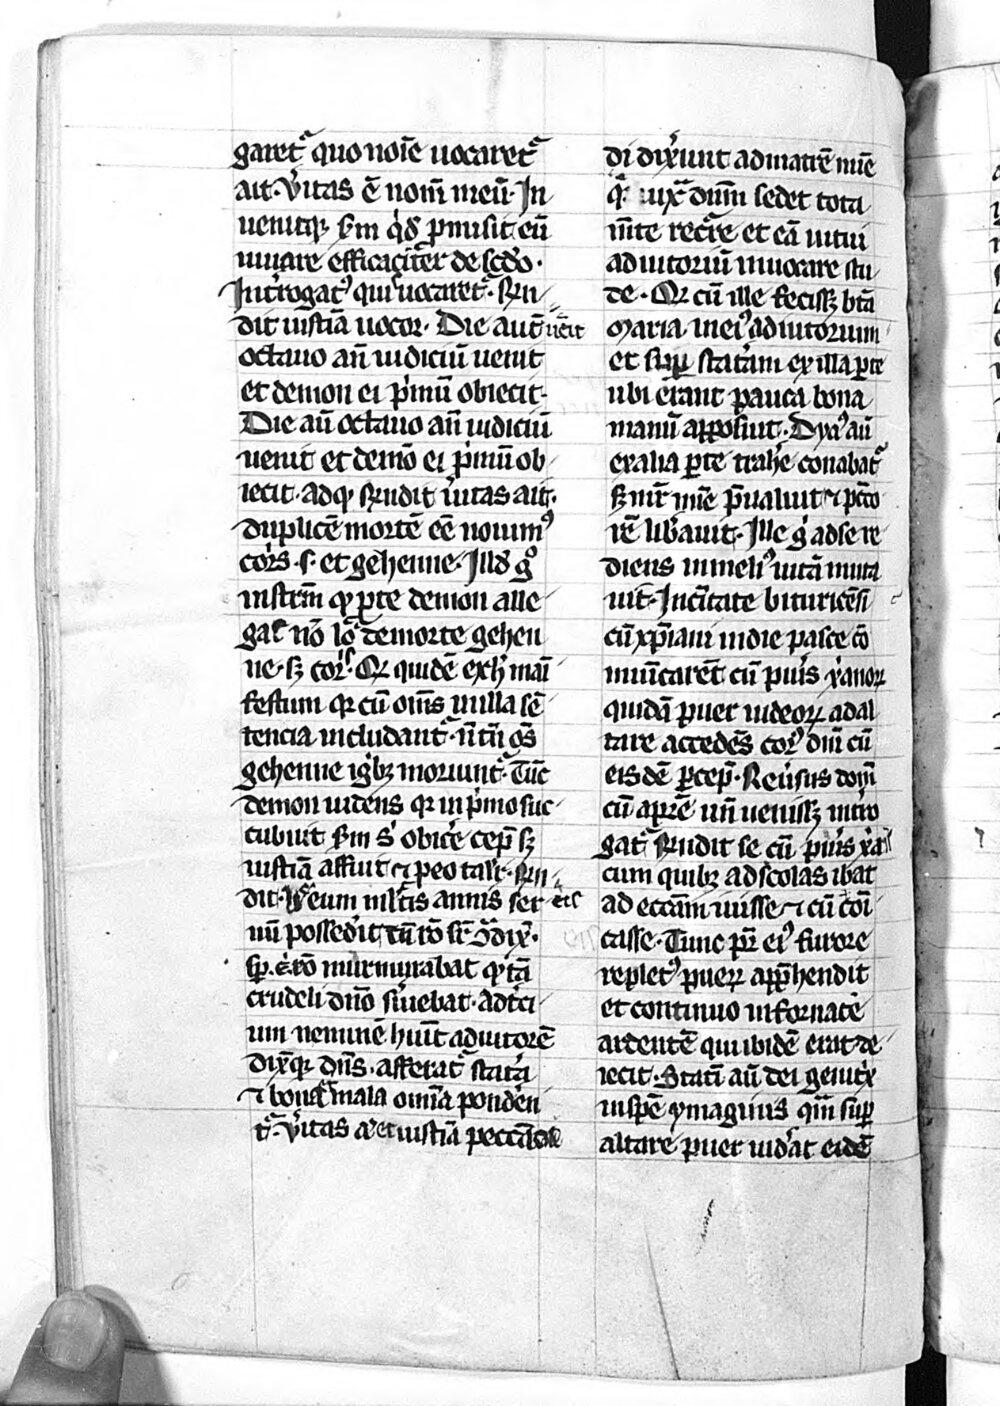 garet᷑ quo noīe uocaret᷑
ait. ũitas ē nom̄ meū. In
uenitqꝫ sm̄ q̇d ꝓmisit eū
iuuare efficacit̃ er de scd̄o.
Int̃rogat᷒ qui uocaret᷑. r̃n
dit iustiā uocor. Die aut̄ ūcit
octauo an̄ iudiciū uenit
et demon ei p̃mū obiecit.
Die aū octauo an̄ iudiciū
uenit et demō ei p̃mū ob
iecit. ad qͥ r̃ndit ũitas ait.
duplicē mortē eē nouim᷒
cor̃is .s. et gehenne. Illd̓ g̊
instr̄m qͥ ꝓ te demon alle
gat nō lo᷑ de morte gehen
ne sꝫ cor̃is. Qꝛ quidē ex h̓ mani
festum qꝛ cū om̄s in illa sē
tencia includant᷑. n̄ tn̄ om̄s
gehenne ig̓bꝫ moriunt᷑. Tūc
demon uidens qꝛ in p̃mo suc
cubuit sm̄ s̓ obic̓e cep̄ sꝫ
iustiā affuit ⁊ ꝓ eo tal̓r r̃n
dit. Ꝙ eum m̄ltis annis ser etc
uū possedit, tn̄ rō sꝑ 9̃dix̓.
sꝑ. e. rō murmurabat qͥ tā
crudeli dn̄o s̓uiebat. Ad t̓ci
um neminē habuit adiutorē
dix̓qꝫ dn̄s. afferat᷑ stat̓a
⁊ bona ⁊ mala om̄ia ponden
t᷑. Ũitas a᷑ et iustiā peccat̄
di dix̓unt ad matrē mīe
q̄ iuxͣ dn̄m sedet tota
m̄te rec᷑re et eā in tui
adiutoriū inuocare stu
de. Qꝛ cū ille fecissꝫ bt̄a
Maria in ei᷒ adiutorium
et suꝑ stat̓am ex illa ꝑte
ubi erant pauca bona
manū apposuit. Dya᷒ aū
ex alia ꝑte trah̓e conabat᷑
sꝫ mr̄ mīe p̄ualuit ⁊ pctō
rē lib̓auit. Ille g̊ ad se re
diens in meli᷒ uitā muta
uit. In ciūtate bituricēsi
cū xp̄iani in die pasce cō
mūicarēt cū pu̓is x̓anoꝝ
quidā puer iudeoꝝ ad al
tare accedēs corp᷒ dn̄i cū
eis dē ꝑcep̄. Reũsus domū
cū a pr̄e un̄ uenissꝫ int̃ro
gat᷑ r̃ndit se cū pu̓is x̓an
cum quibꝫ ad scolas ibat
ad eccām iuisse ⁊ cū eōi
casse. Tunc pr̄ ei᷒ furore
replet᷒ puerꝫ app̄hendit
et continuo in fornacē
ardentē qui ibidē erat de
iecit. Statī aū dei genit̓x
in spē ymaginis quā suꝑ
altare puer uid̓at eidē